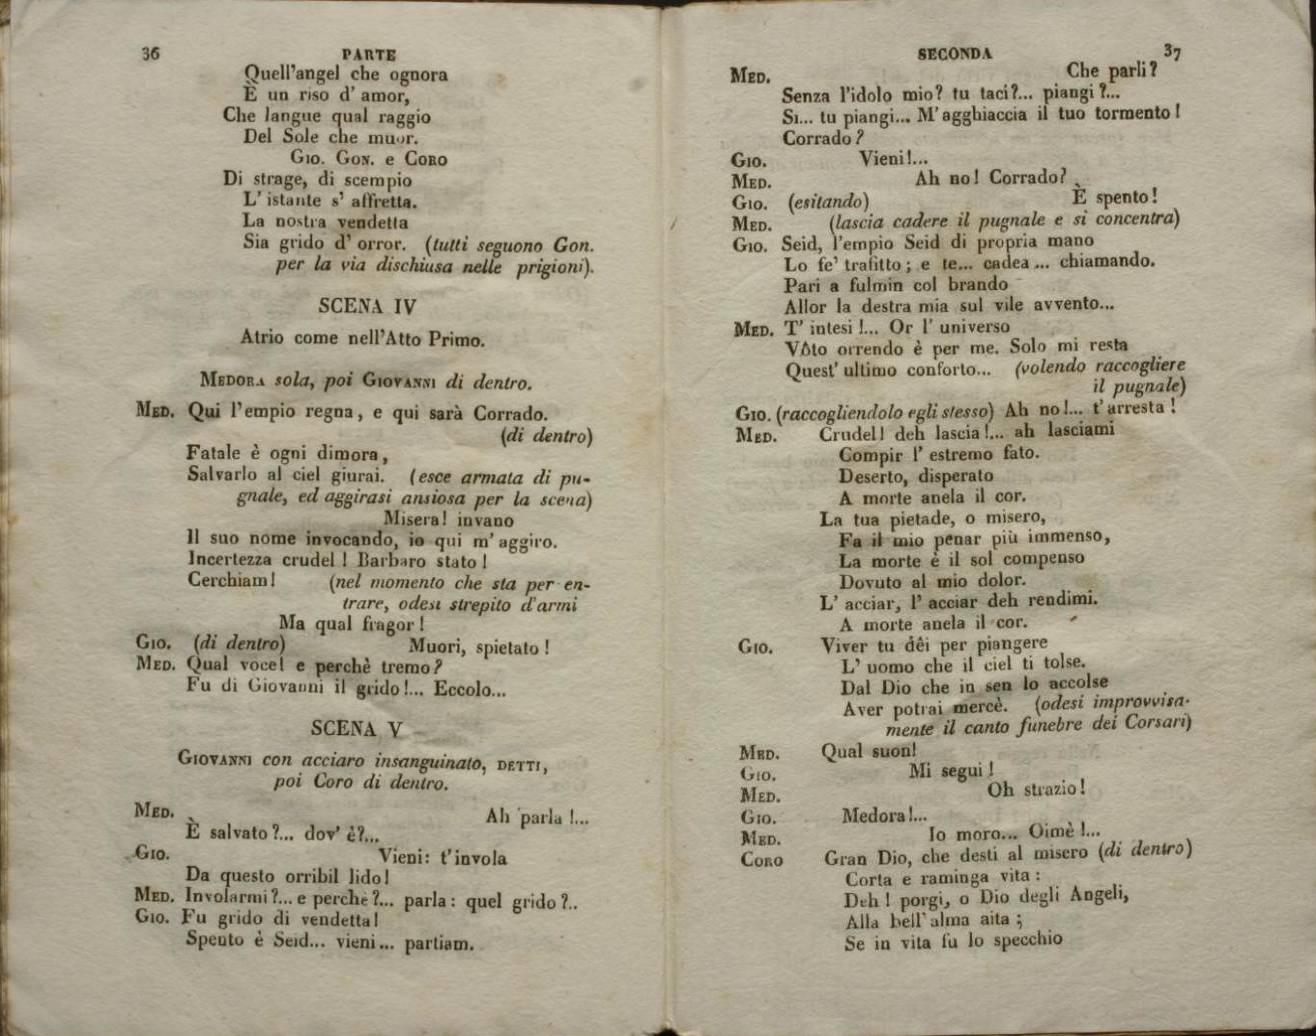 36 PARTE
Quell'angel che ognora
È un riso d' amor,
Che langue qual raggio
Del Sole che muor.
GIO. GON. e CORO
Di strage, di scempio
L' istante s' affretta.
La nostra vendetta
Sia grido d' orror. (tutti seguono Gon.
per la via dischiusa nelle prigioni).
SCENA IV
Atrio come nell'Atto Primo.
MEDORA sola, poi GIOVANNI di dentro.
MED. Qui l'empio regna, e qui sarà Corrado.
(di dentro)
Fatale è ogni dimora,
Salvarlo al ciel giurai. (esce armata di pu-
gnale, ed aggirasi ansiosa per la scena)
Misera! invano
Il suo nome invocando, io qui m' aggiro.
Incertezza crudel! Barbaro stato!
Cerchiam! (nel momento che sta per en-
trare, odesi strepito d'armi
Ma qual fragor!
GIO. (di dentro) Muori, spietato!
MED. Qual voce! e perchè tremo?
Fu di Giovanni il grido!... Eccolo...
SCENA V
GIOVANNI con acciaro insanguinato, DETTI,
poi Coro di dentro.
MED. Ah parla!...
È salvato?... dov' è?...
GIO. Vieni: t'invola
Da questo orribil lido!
MED. Involarmi?... e perchè?... parla: quel grido?..
GIO. Fu grido di vendetta!
Spento è Seid... vieni... partiam.
SECONDA 37
MED. Che parli?
Senza l'idolo mio? tu taci?... piangi?...
Si... tu piangi... M' agghiaccia il tuo tormento!
Corrado?
GIO. Vieni!...
MED. Ah no! Corrado?
GIO. (esitando) È spento!
MED. (lascia cadere il pugnale e si concentra)
GIO. Seid, l'empio Seid di propria mano
Lo fe' trafitto; e te... cadea... chiamando.
Pari a fulmin col brando
Allor la destra mia sul vile avvento...
MED. T' intesi!... Or l' universo
Vôto orrendo è per me. Solo mi resta
Quest' ultimo conforto... (volendo raccogliere
il pugnale)
GIO. (raccogliendolo egli stesso) Ah no!... t'arresta!
MED. Crudel! deh lascia!... ah lasciami
Compir l' estremo fato.
Deserto, disperato
A morte anela il cor.
La tua pietade, o misero,
Fa il mio penar più immenso,
La morte è il sol compenso
Dovuto al mio dolor.
L' acciar, l' acciar deh rendimi.
A morte anela il cor.
GIO. Viver tu dêi per piangere
L' uomo che il ciel ti tolse.
Dal Dio che in sen lo accolse
Aver potrai mercè. (odesi improvvisa-
mente il canto funebre dei Corsari)
MED. Qual suon!
GIO. Mi segui!
MED. Oh strazio!
GIO. Medora!...
MED. Io moro... Oimè!...
CORO Gran Dio, che desti al misero (di dentro)
Corta e raminga vita:
Deh! porgi, o Dio degli Angeli,
Alla bell' alma aita;
Se in vita fu lo specchio